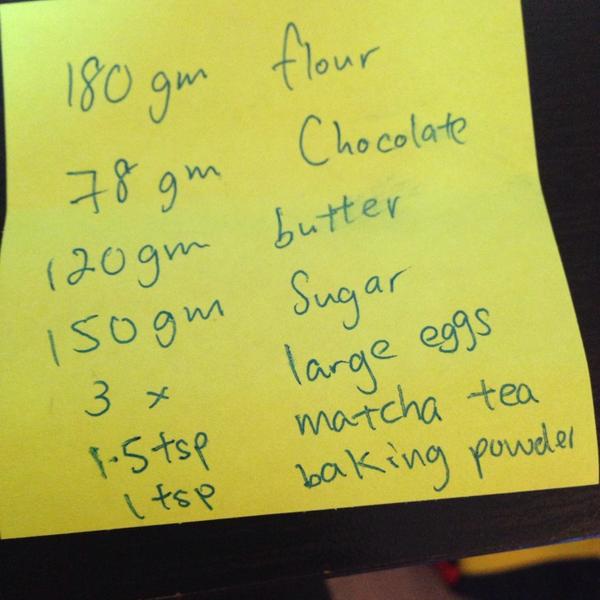 180 gm flour
78 gm Chocolate
120 gm butter
150 gm Sugar
3 x large eggs
1.5 tsp matcha tea
1 tsp baking powder